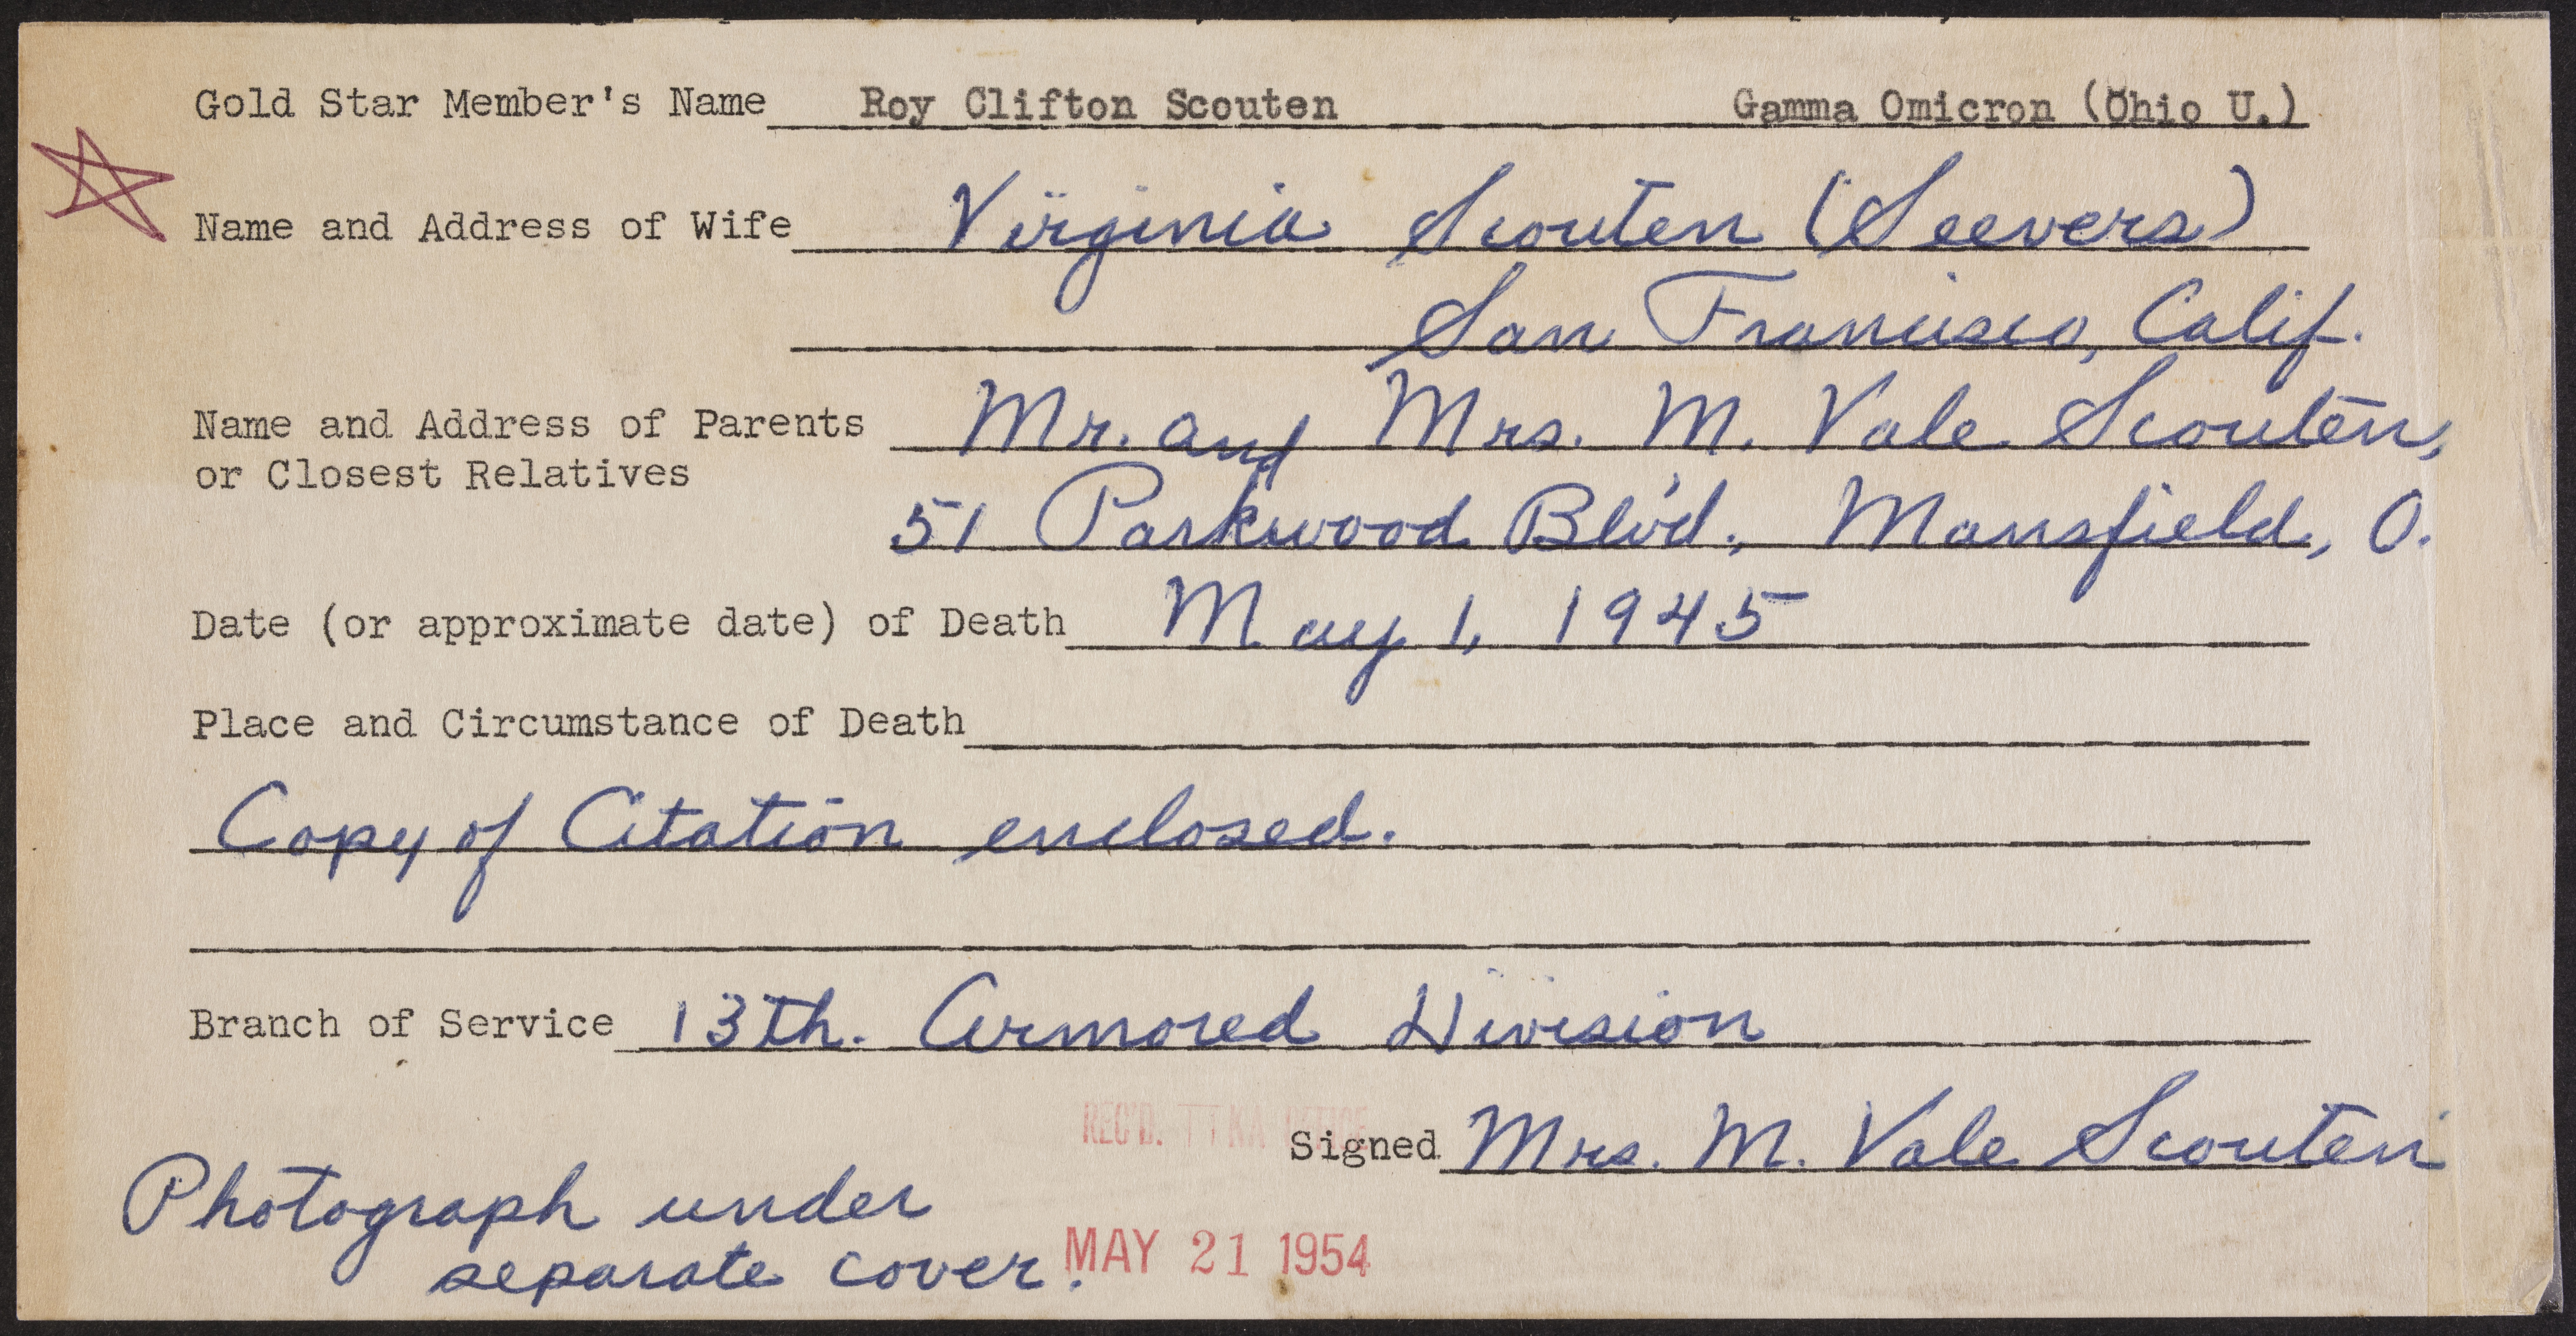 Gold Star Member's Name Roy Clifton Scouten Gamma Omicron (Ohio U.)
Name and Address of Wife Virginia Scouten (Seevers)
San Francisco, Calif.
Name and Address of Parents Mr. and Mrs. M. Vale Scouten,
or Closest Relatives
51 Parkwood Blv'd., Mansfield, O.
Date (or approximate date) of Death May 1, 1945
Place and Circumstance of Death
Copy of Citation enclosed.
Branch of Service 13th. Armored Division
REC'D. TTKA OFFICE
Signed Mrs. M. Vale Scouten
Photograph under
separate cover.
MAY 21 1954